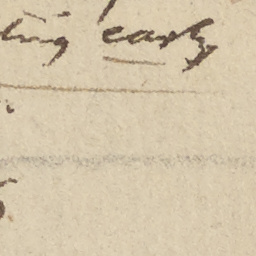 ting early